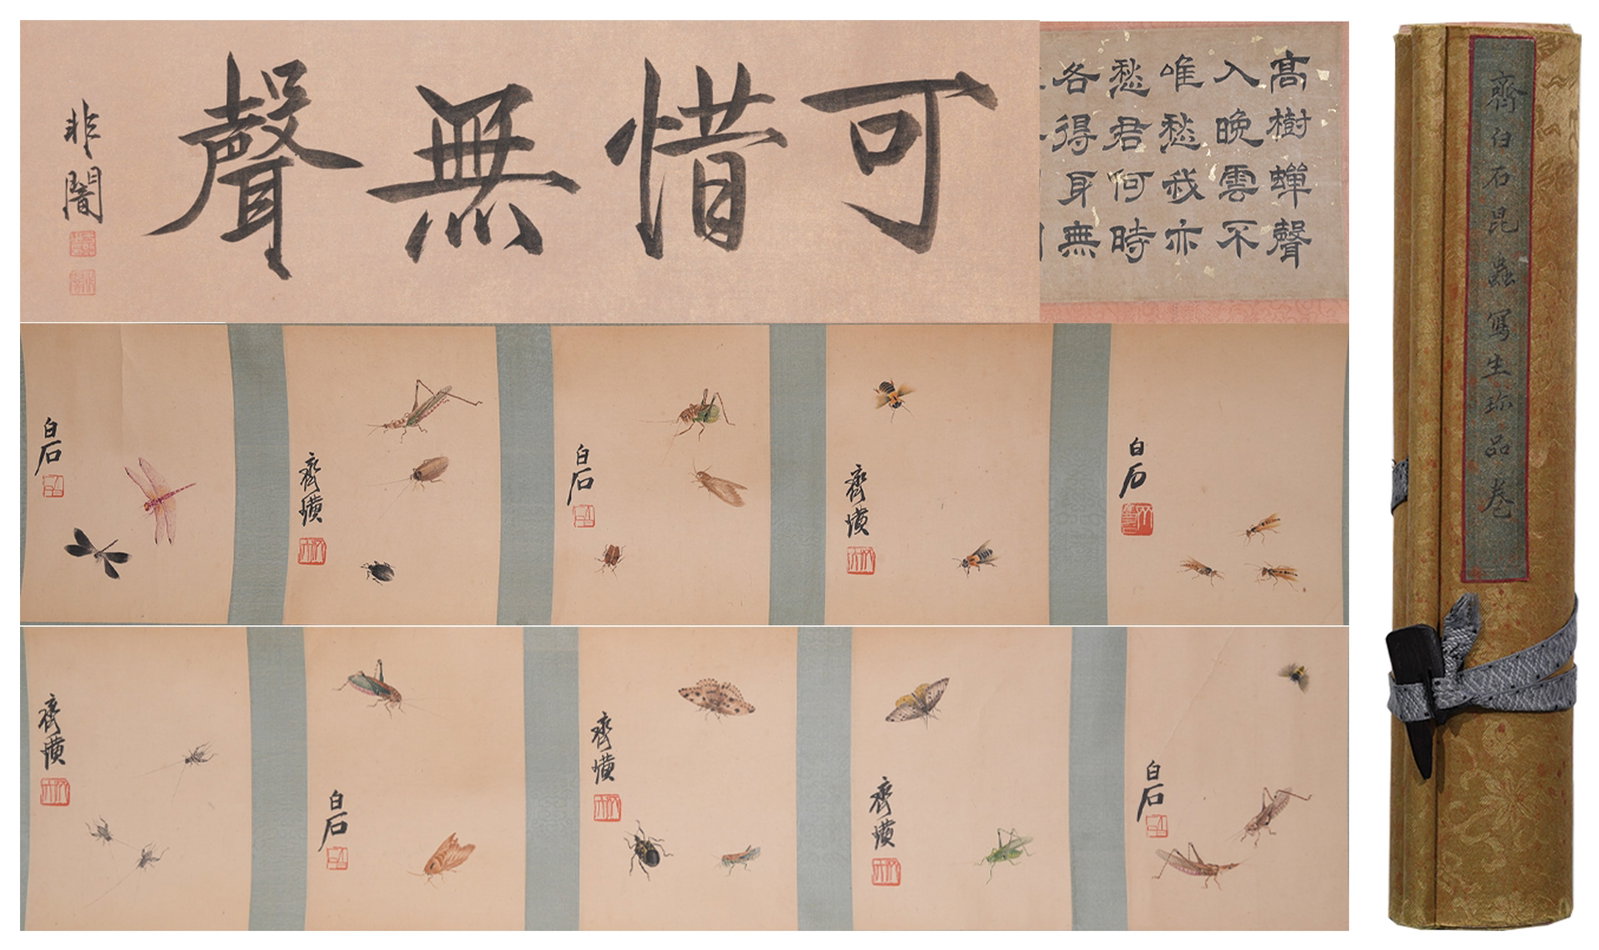 可惜無聲
非闇
高樹蟬聲
入晚雲不
唯愁我亦
愁君何時
各得身無
齊白石昆蟲寫生珎品卷
白石
齊璜
白石
齊璜
白石
齊璜
白石
齊璜
齊璜
白石